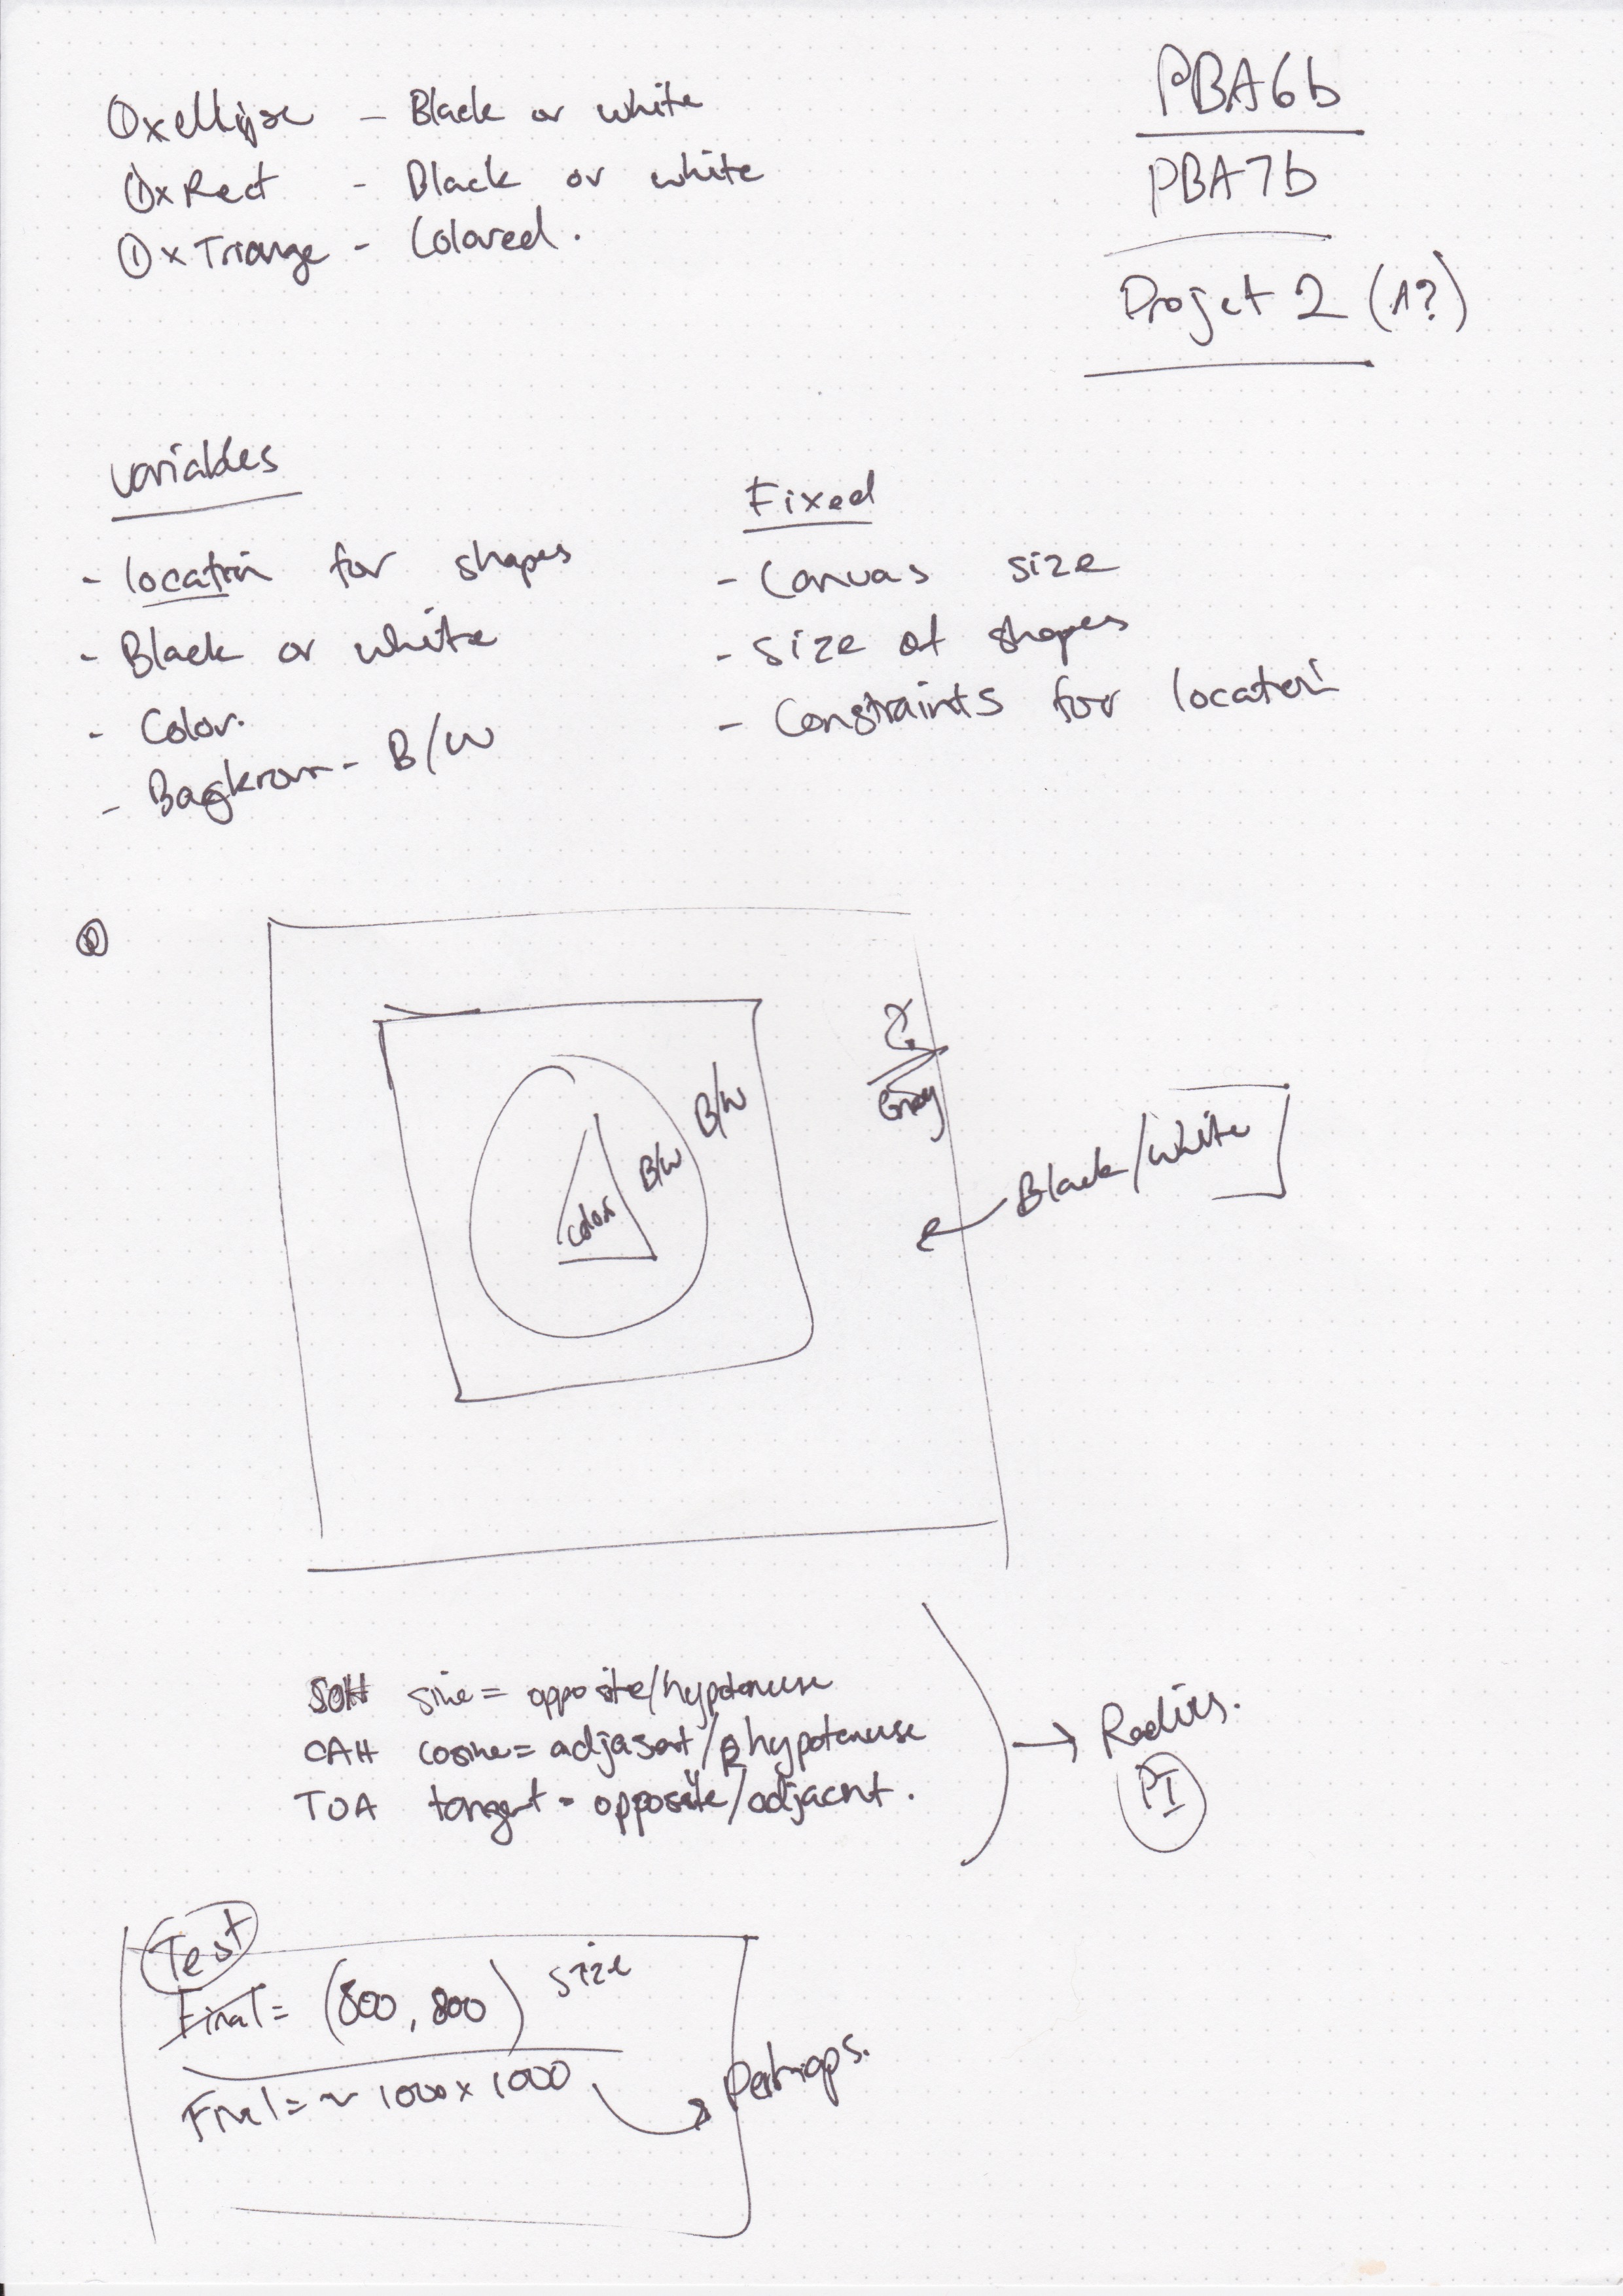 ①x ellipse - Black or white
①x Rect - Black or white
①x Triange - Colored.
PBA6b
PBA7b
Projet 2 (1?)
Variables
- location for shapes
- Black or white
- Color.
- Bagkroun - B/W
Fixed
- Canvas size
- Size of shapes
- Constraints for location
?
Gray
B/W
B/W
Color
Black/white
SOH sine = opposite/hypotenuse
CAH cosine = adjasent/hypotenuse
TOA tangent = opposite/adjacent.
Radius.
PI
Test
Final = (800, 800) size
Final = ~ 1000 x 1000
Perhaps.